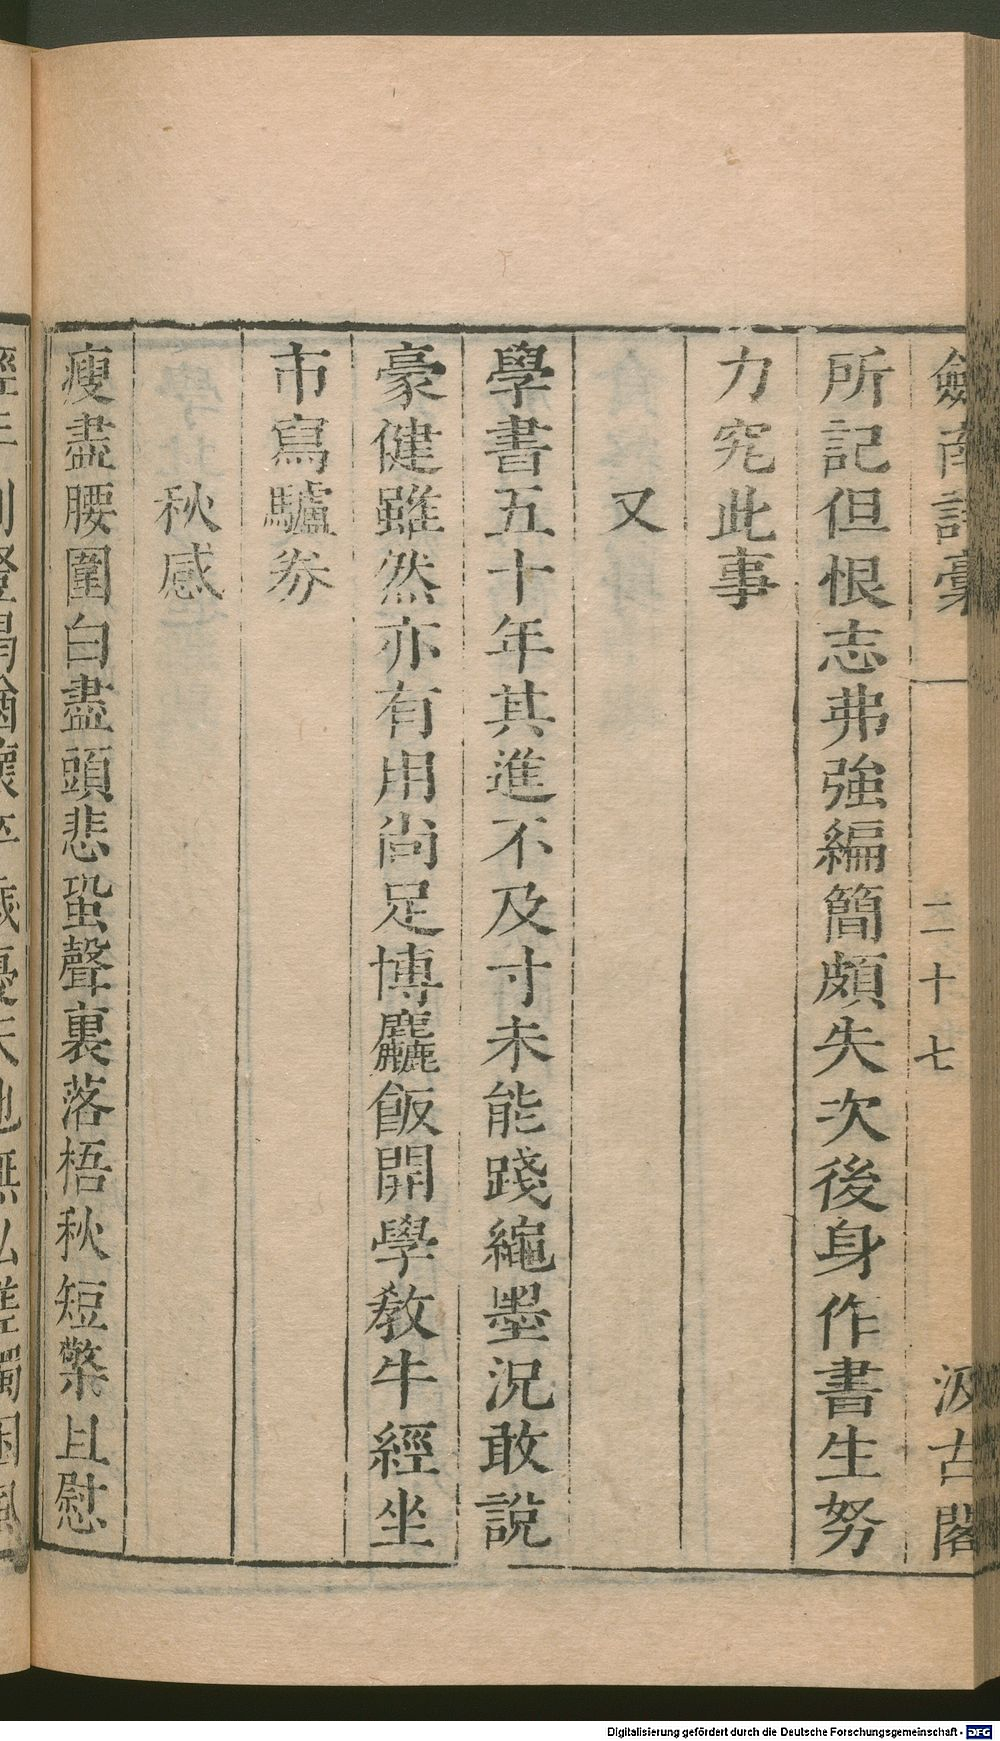 劍南詩稾 二十七 汲古閣
所記但恨志弗強編簡頗失次後身作書生努
力究此事
又
學書五十年其進不及寸未能踐繩墨況敢說
豪健雖然亦有用尚足博麤飯開學教牛經坐
市寫驢券
秋感
瘦盡腰圍白盡頭悲蛩聲裏落梧秋短檠且慰
Digitalisierung gefördert durch die Deutsche Forschungsgemeinschaft - DFG